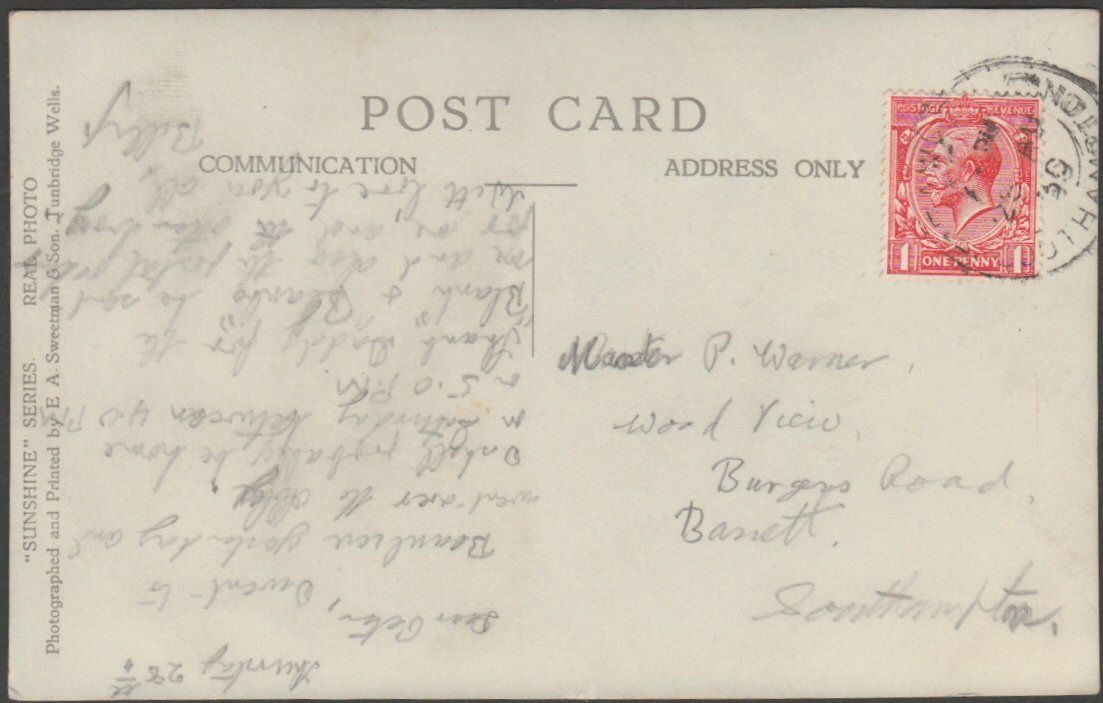 POST CARD
COMMUNICATION
ADDRESS ONLY
"SUNSHINE" SERIES. REAL PHOTO
Photographed and Printed by E. A. Sweetman & Son. Tunbridge Wells.
POSTAGE REVENUE
1 ONE PENNY 1
Thursday 28th
Dear Peter,
I went to
Beaulieu yesterday and
went over the Abbey.
I shall probably be home
on Saturday between 4.0 PM
or 5.0 PM
Thank Daddy for the
"Blank & Blanks" he sent
me and also the postal order
for me and the
With love to you all,
Billy
Master P. Warner,
Wood View,
Burgess Road,
Bassett.
Southampton.